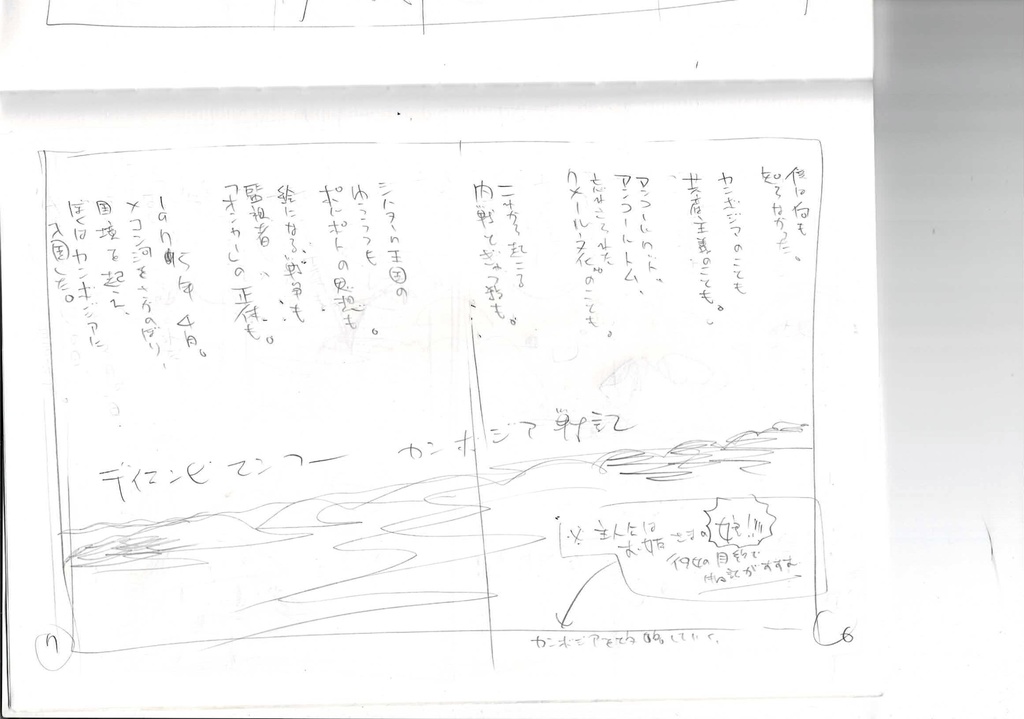 僕は何も
知らなかった。
カンボジアのことも
共産主義のことも。
アンコールワット、
アンコールトム、
忘れられた
クメール文化のことも
これから起こる
内戦とぎゃく殺も。
シハヌーク王国の
ゆううつも。
ポル・ポトの思想も
絵になる戦争も
監視者
「オンカー」の正体も。
年4月。
メコン河をさかのぼり、
国境を起え、
ぼくはカンボジアに
入国した。
ディエンビエンフー カンボジア戦記
※主人公は
お姫さまの
目線で
カンボジアを
6
7